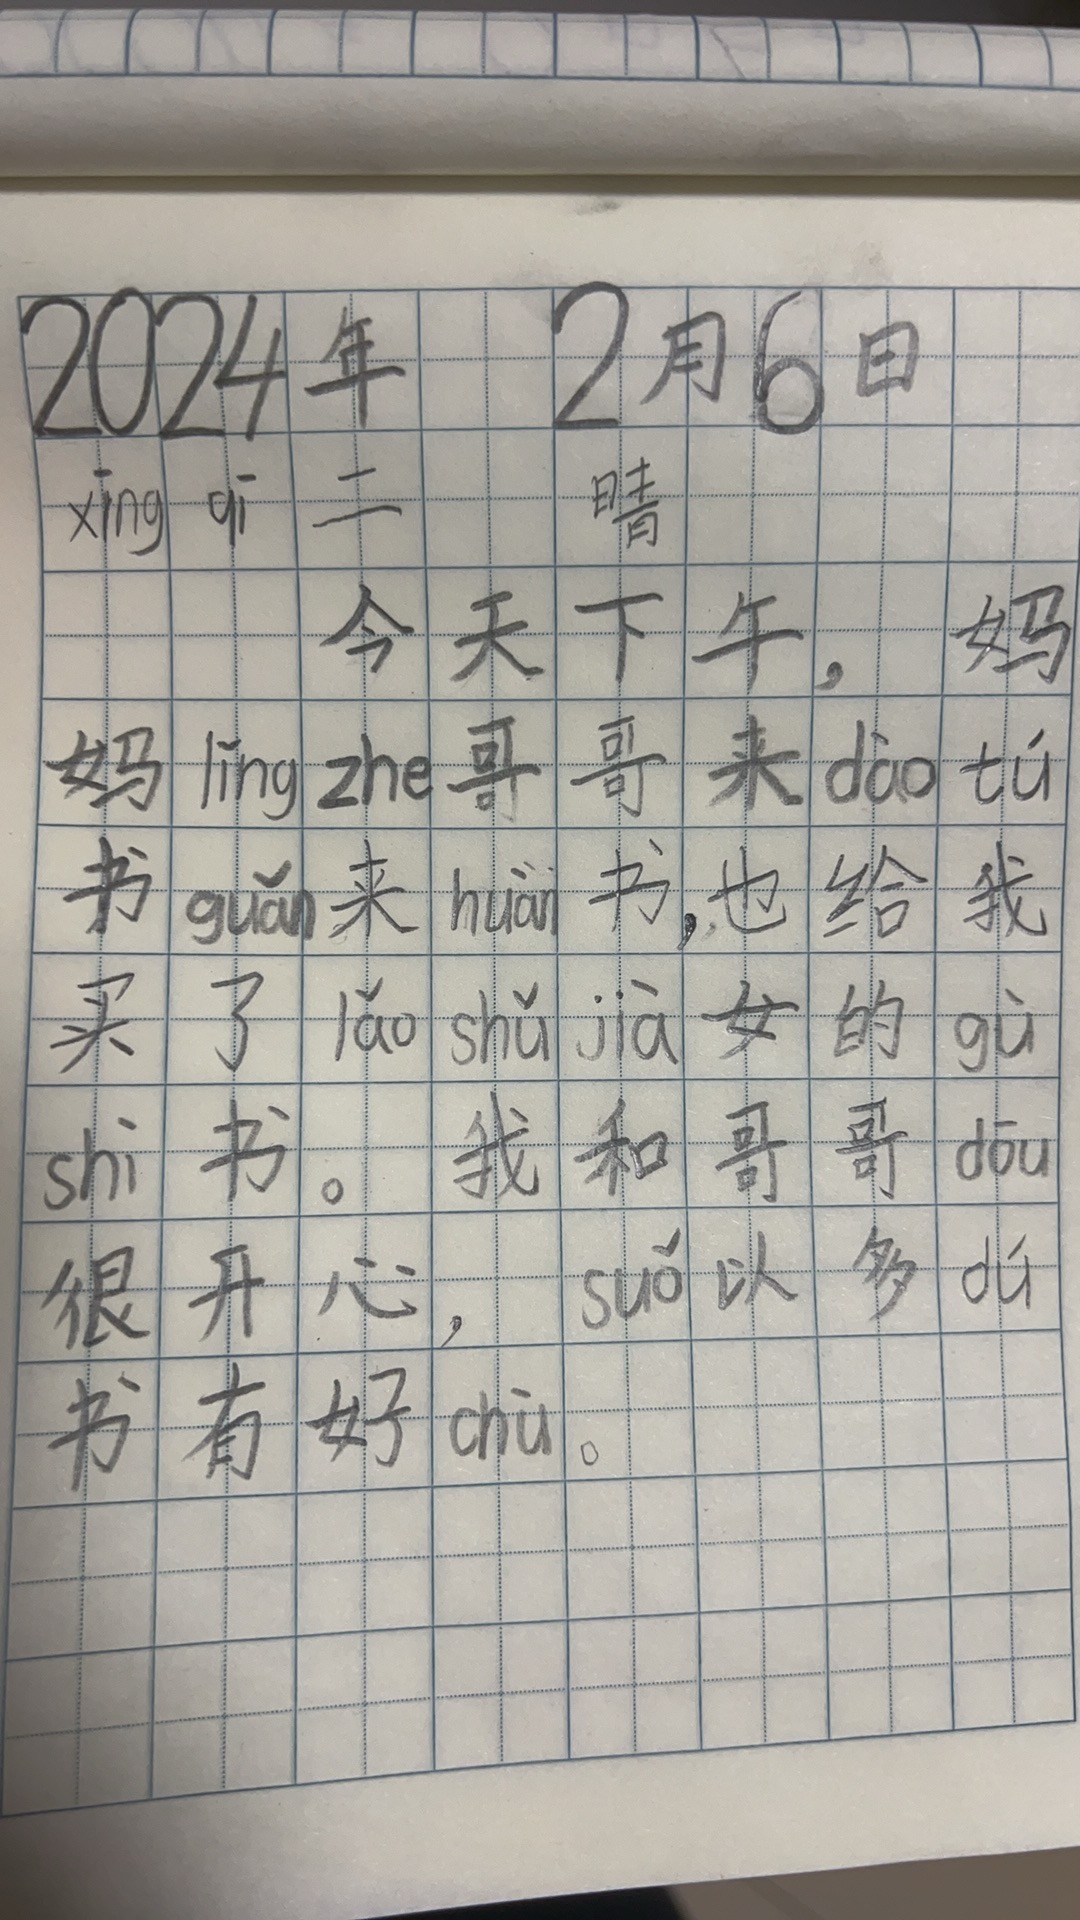 2024年 2月6日
xīng qī 二 晴
今天下午，妈
妈 lǐng zhe 哥哥来 dào tú
书 guǎn 来 huàn 书，也给我
买了 lǎo shǔ jià 女的 gù
shi 书。我和哥哥 dōu
很开心，suǒ 以多 dú
书有好 chù。